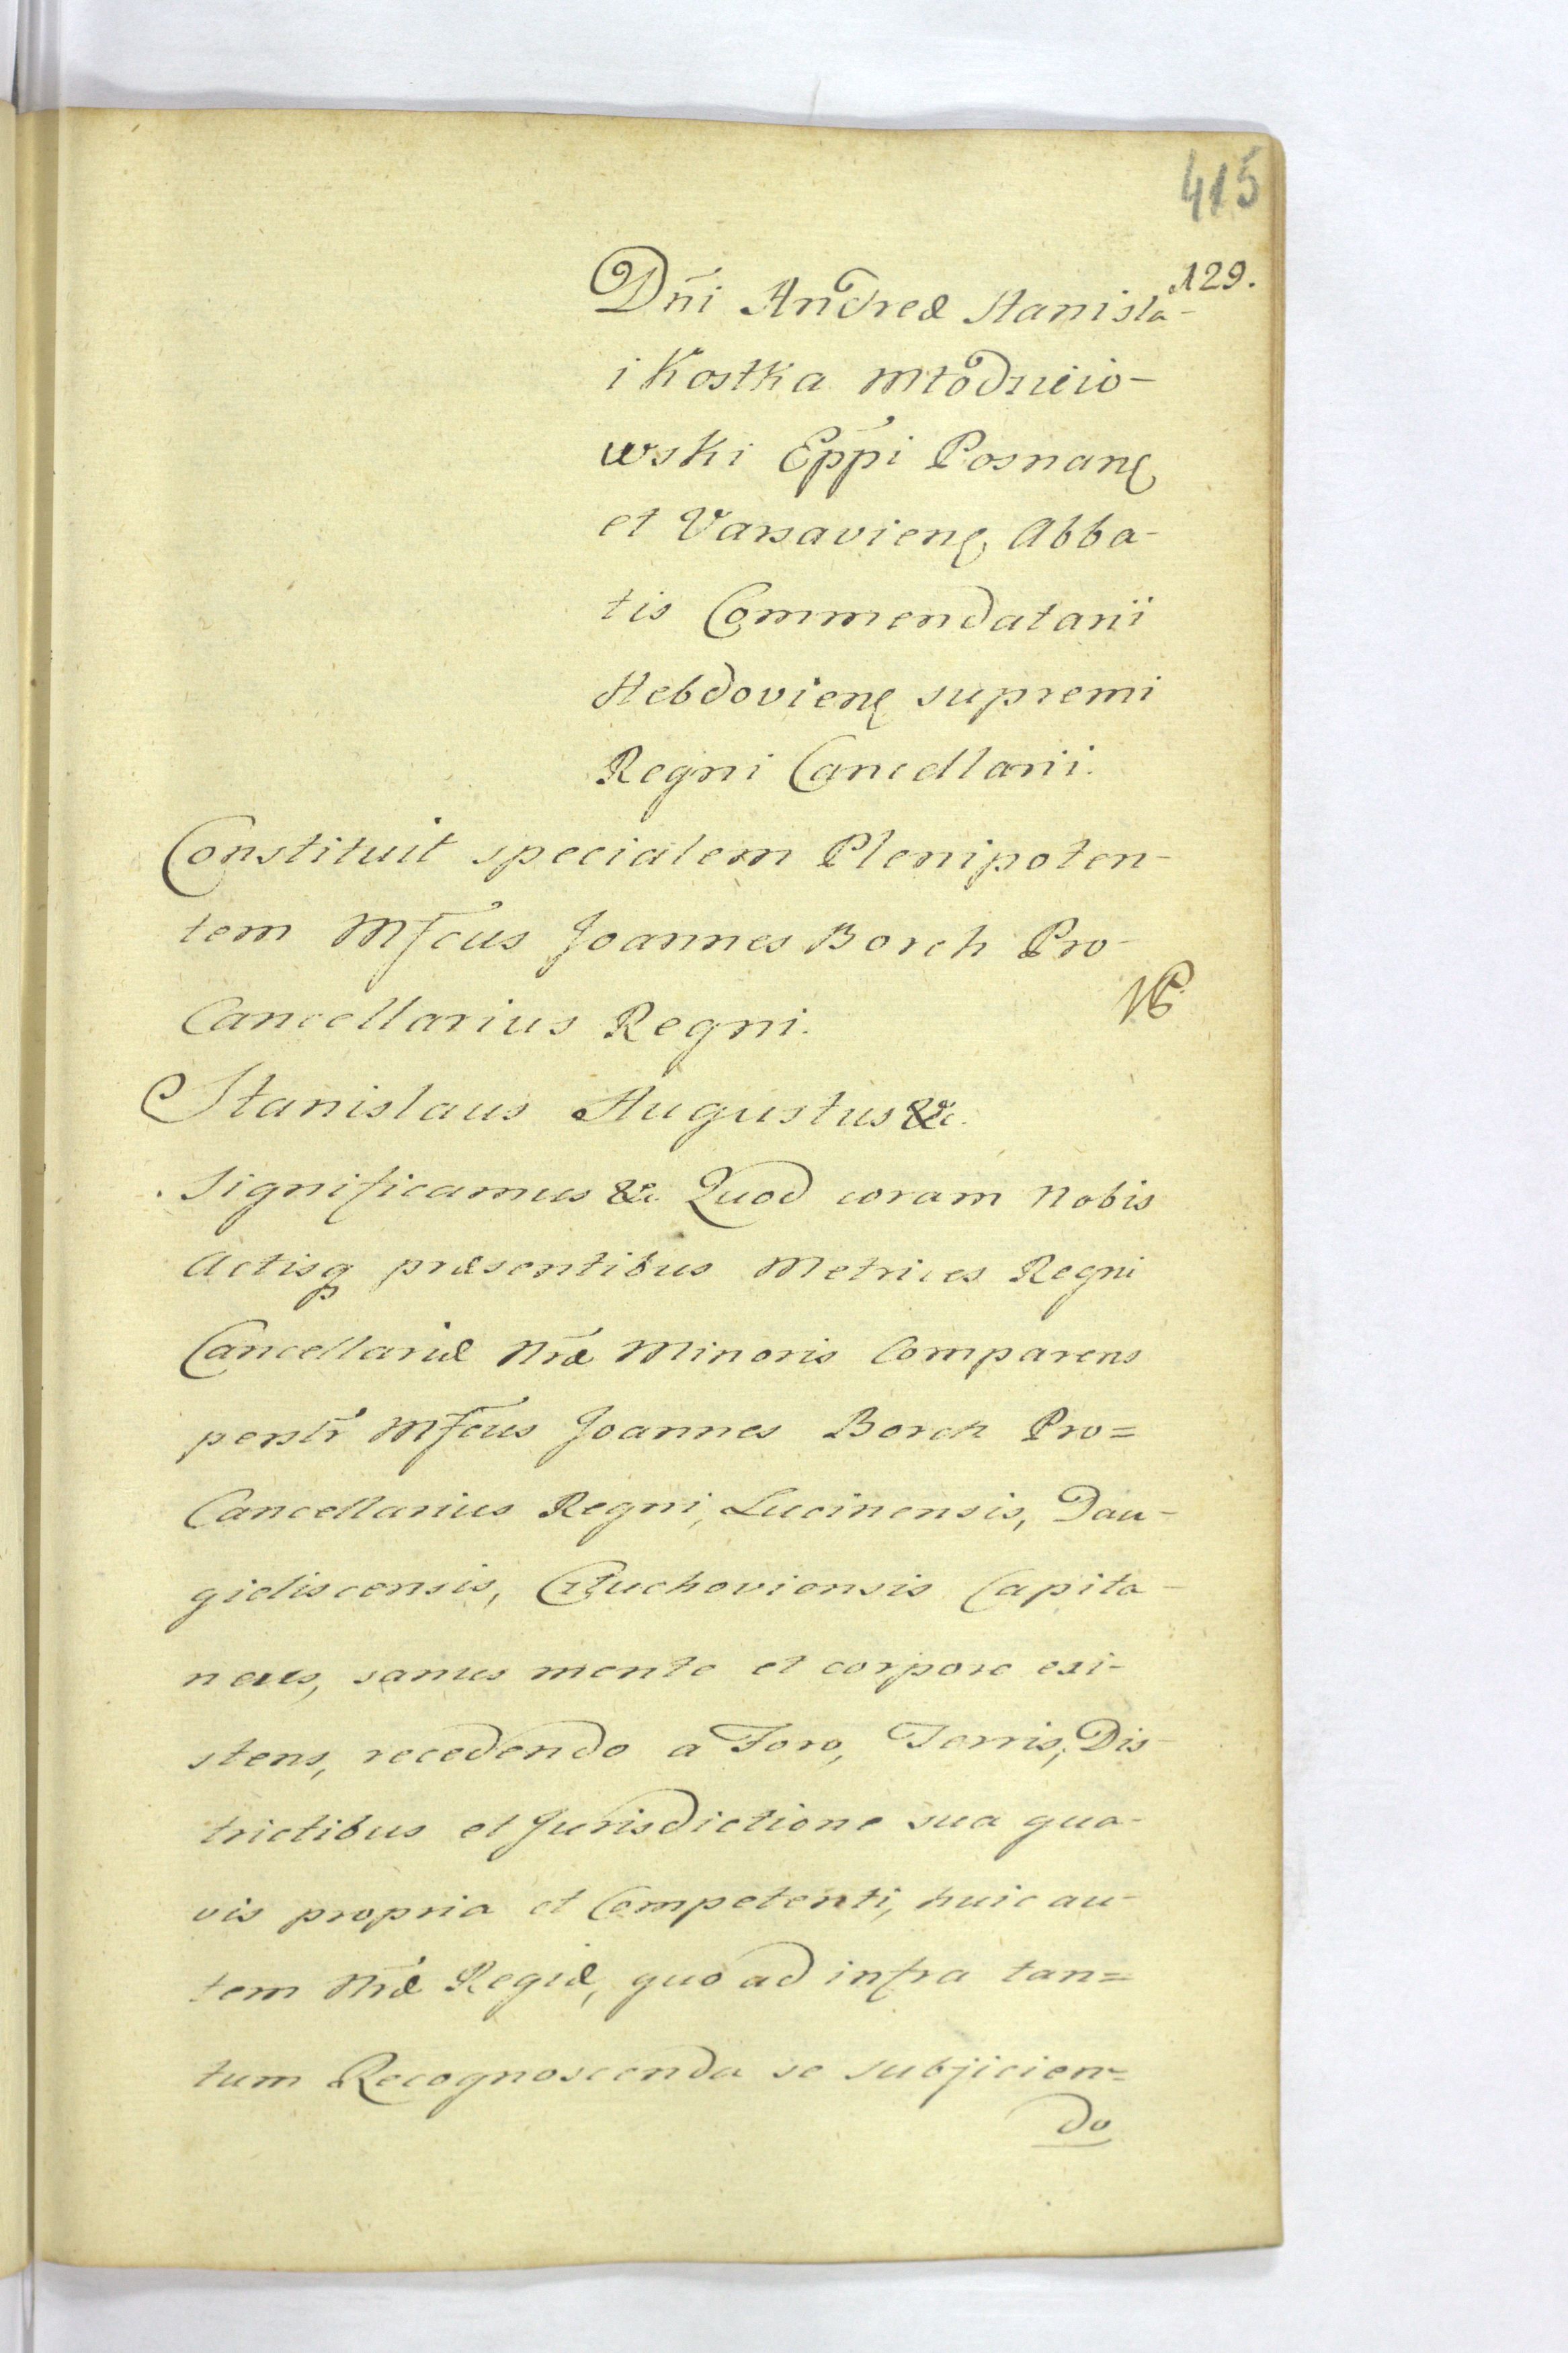 415
129.
Dñi Andreæ Stanisla-
i Kostka Młodzieio-
wski Eppi Posnanę
et Varsavienę, Abba-
tis Commendatarii
Hebdovienę supremi
Regni Cancellarii.
Constituit specialem Plenipoten-
tem Mfcus Joannes Borch Pro-
Cancellarius Regni.
Stanislaus Augustus &c.
Significamus &c. Quod coram Nobis
Actisq præsentibus Metrices Regni
Cancellariæ Nræ Minoris Comparens
personlr Mfcus Joannes Borch Pro=
Cancellarius Regni, Lucinensis, Dau-
gieliscensis, Człuchoviensis Capita-
neus, sanus mente et corpore exi-
stens, recedendo a Foro, Terris, Dis-
trictibus et Jurisdictione sua qua-
vis propria et Competenti, huic au-
tem Nræ Regiæ, quo ad infra tan=
tum Recognoscenda se subjicien=
do